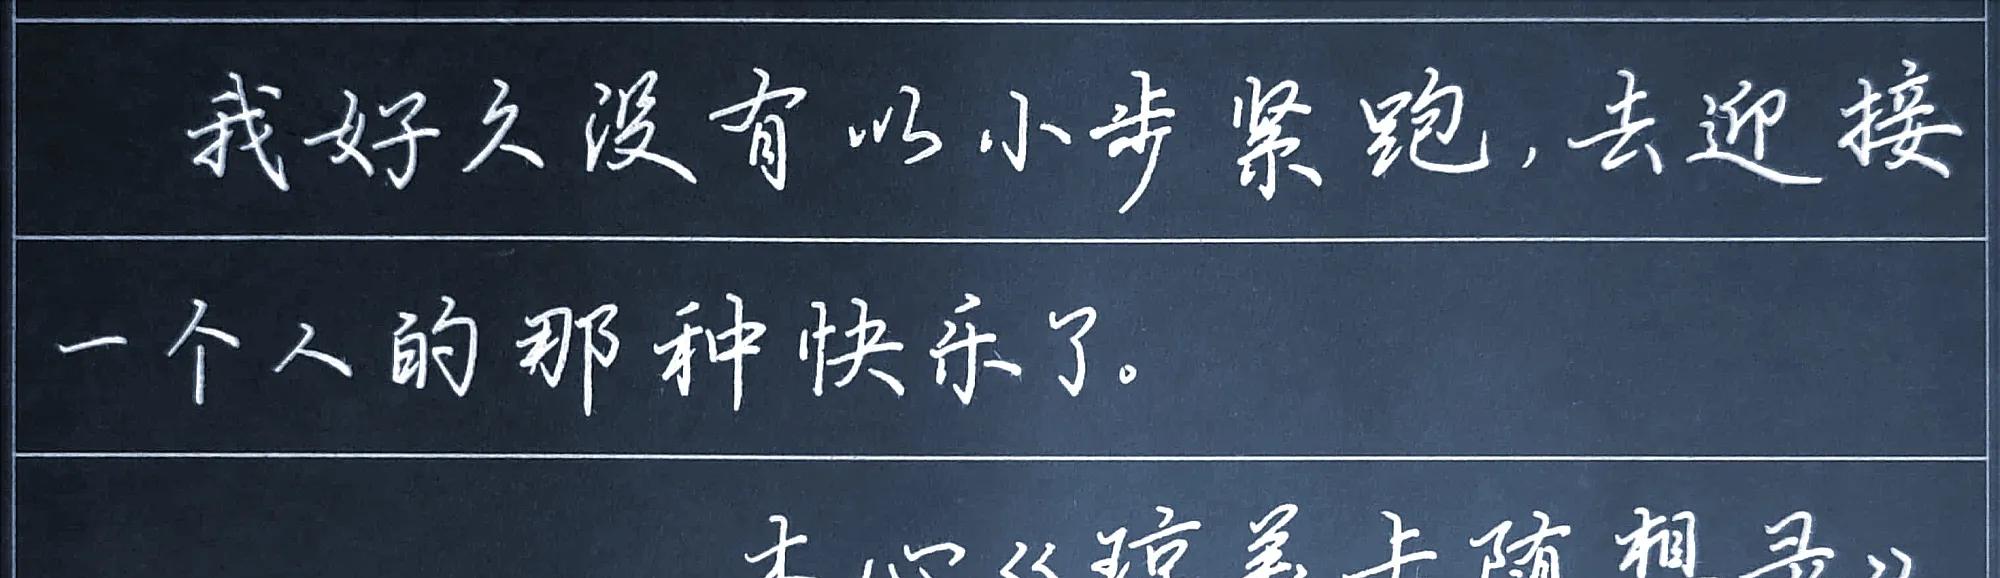 我好久没有以小步紧跑,去迎接
一个人的那种快乐了。
木心《琼美卡随想录》